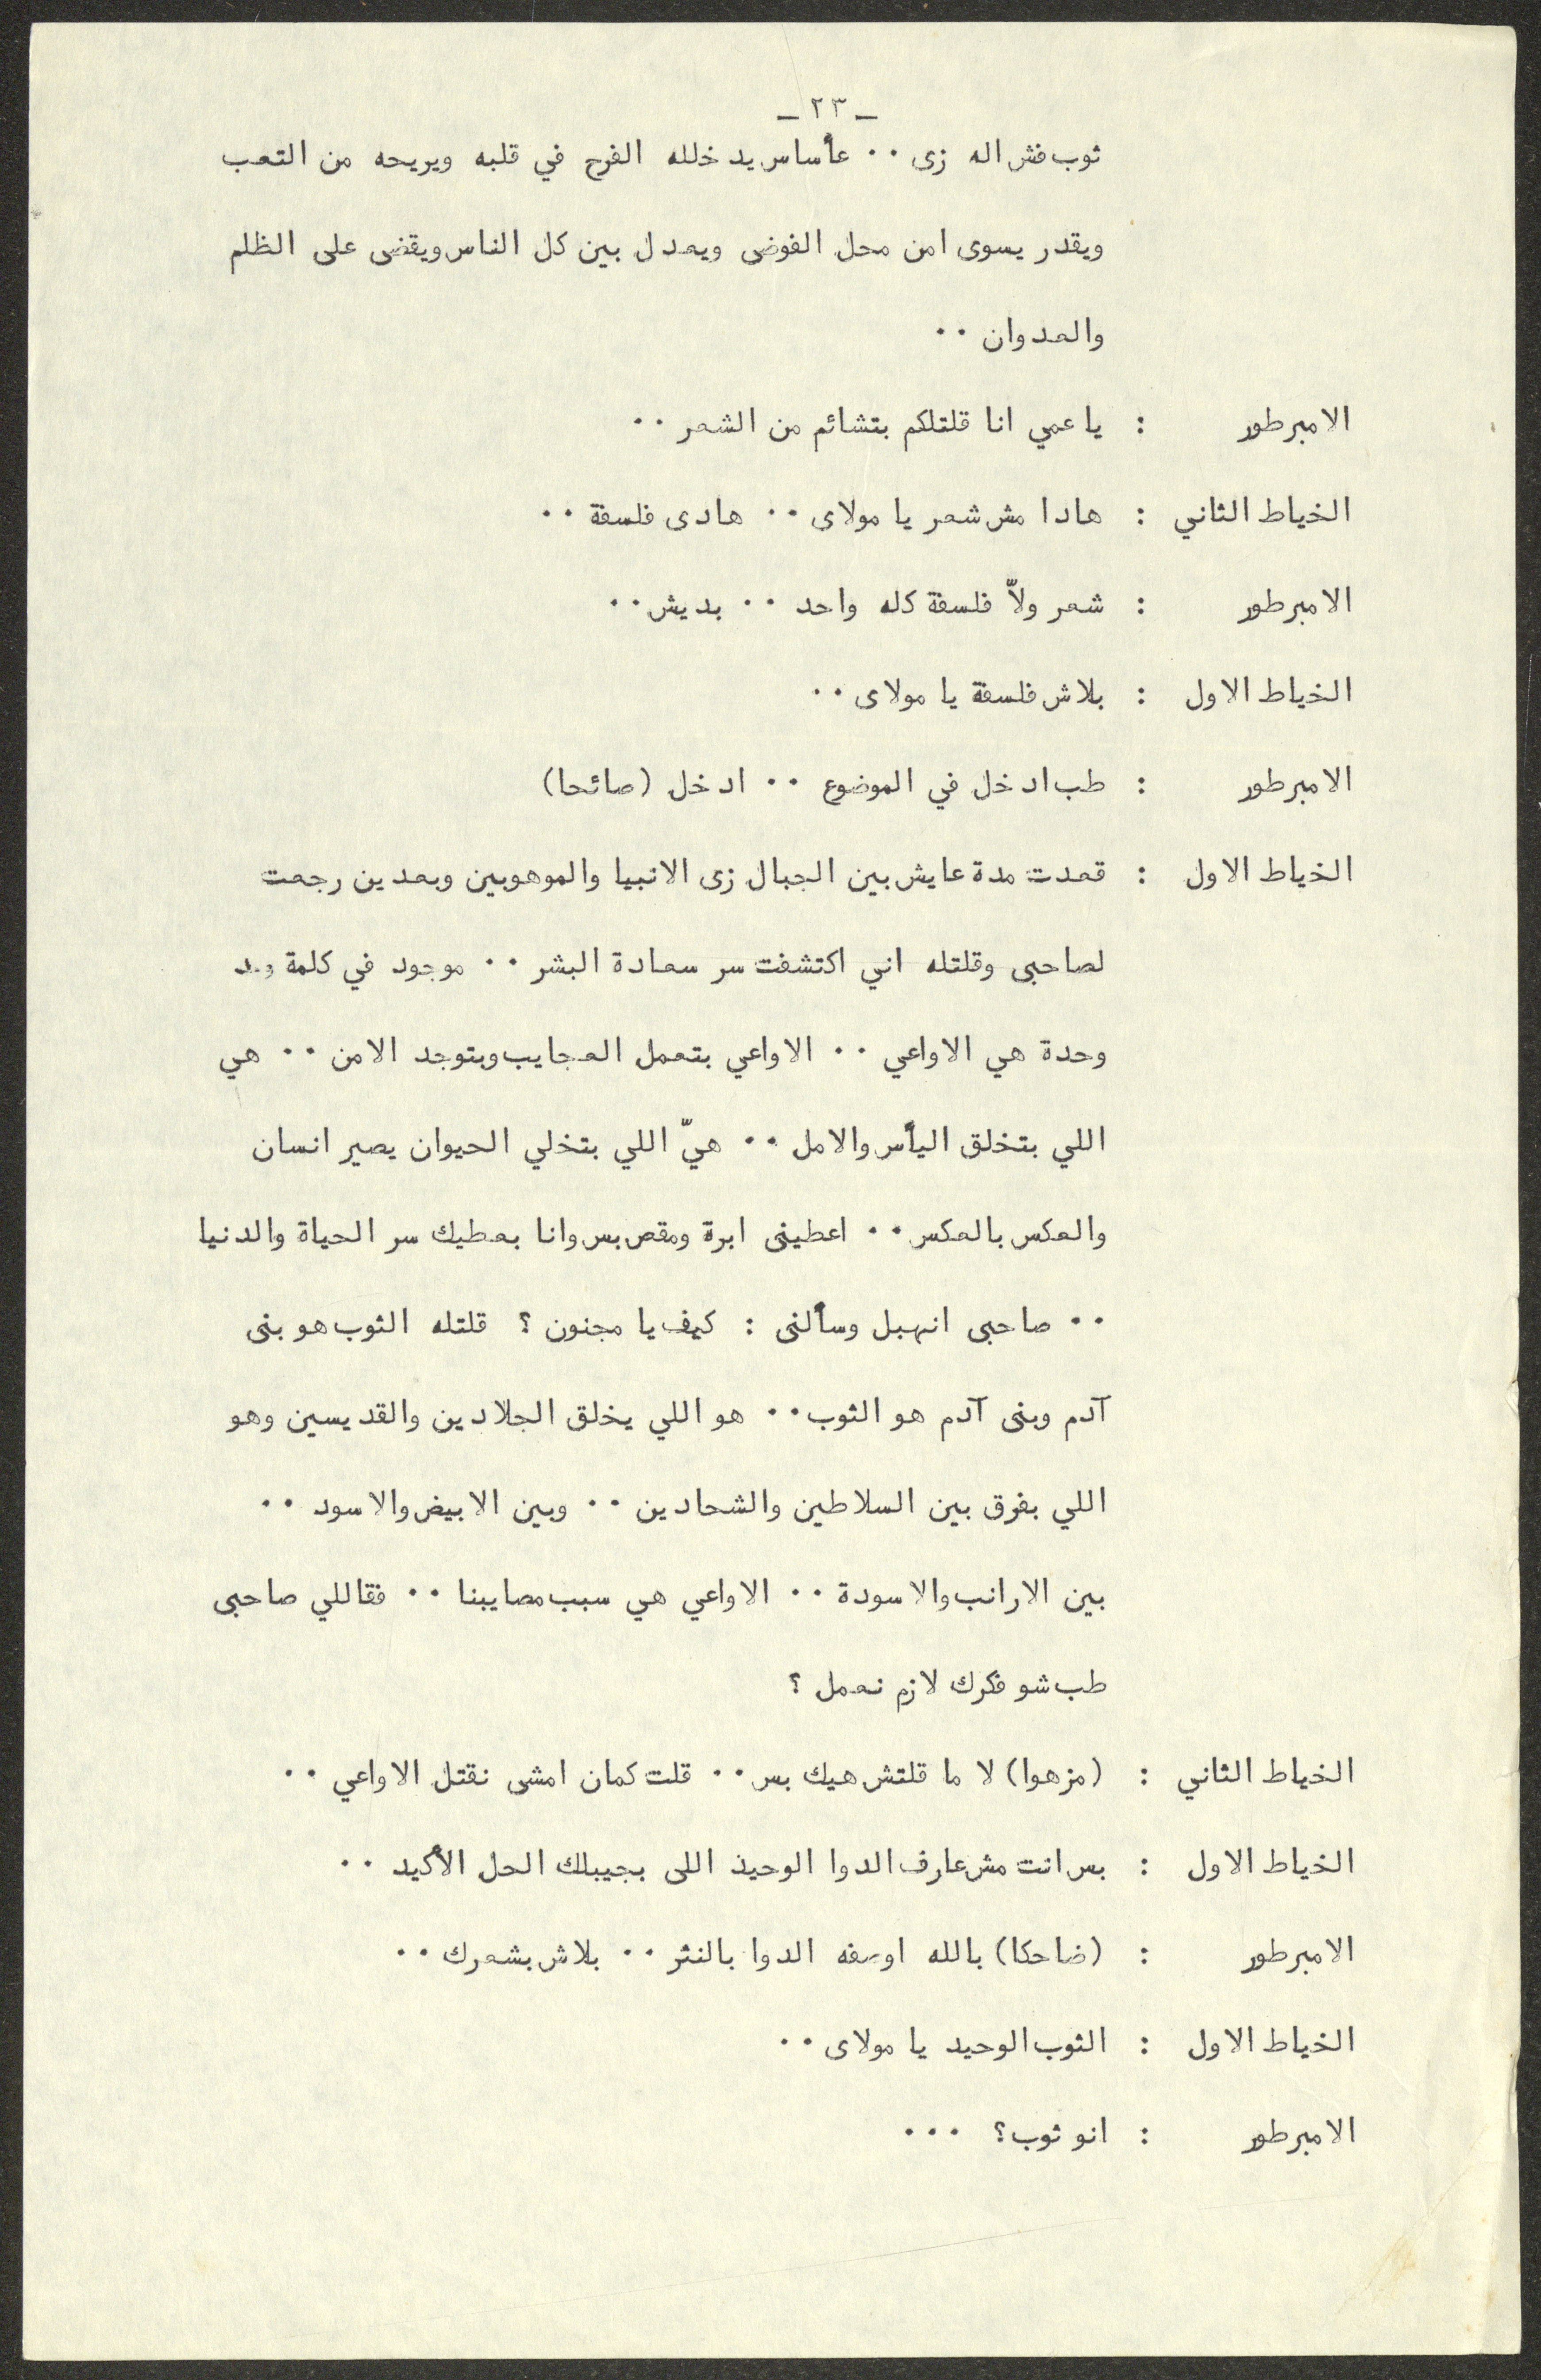 _ ٢٣ _
ثوب فش اله زى ٠٠ عأساس يدخلله الفرح في قلبه ويريحه من التعب
ويقدر يسوى امن محل الفوضى ويعدل بين كل الناس ويقضى على الظلم
والعدوان ٠٠
الامبرطور : يا عمي انا قلتلكم بتشائم من الشعر ٠٠
الخياط الثاني : هادا مش شعر يا مولاى ٠٠ هادى فلسفة ٠٠
الامبرطور : شعر ولاّ فلسفة كله واحد ٠٠ بديش ٠٠
الخياط الاول : بلاش فلسفة يا مولاى ٠٠
الامبرطور : طب ادخل في الموضوع ٠٠ ادخل (صائحا)
الخياط الاول : قعدت مدة عايش بين الجبال زى الانبيا والموهوبين وبعدين رجعت
لصاحبى وقلتله اني اكتشفت سر سعادة البشر ٠٠ موجود في كلمة
وحدة هي الاواعي ٠٠ الاواعي بتعمل العجايب وبتوجد الامن ٠٠ هي
اللي بتخلق اليأس والامل ٠٠ هيّ اللي بتخلي الحيوان يصير انسان
والعكس بالعكس ٠٠ اعطينى ابرة ومقص بس وانا بعطيك سر الحياة والدنيا
٠٠ صاحبى انهبل وسألنى : كيف يا مجنون ؟ قلتله الثوب هو بنى
آدم وبنى آدم هو الثوب ٠٠ هو اللي يخلق الجلادين والقديسين وهو
اللي بفرق بين السلاطين والشحادين ٠٠ وبين الابيض والاسود ٠٠
بين الارانب والاسودة ٠٠ الاواعي هي سبب مصايبنا ٠٠ فقاللي صاحبى
طب شو فكرك لازم نعمل ؟
الخياط الثاني : (مزهوا) لا ما قلتش هيك بس ٠٠ قلت كمان امشى نقتل الاواعي ٠٠
الخياط الاول : بس انت مش عارف الدوا الوحيد اللى بجيبلك الحل الأكيد ٠٠
الامبرطور : (ضاحكا) بالله اوصفه الدوا بالنثر ٠٠ بلاش بشعرك ٠٠
الخياط الاول : الثوب الوحيد يا مولاى ٠٠
الامبرطور : انو ثوب ؟ ٠٠٠